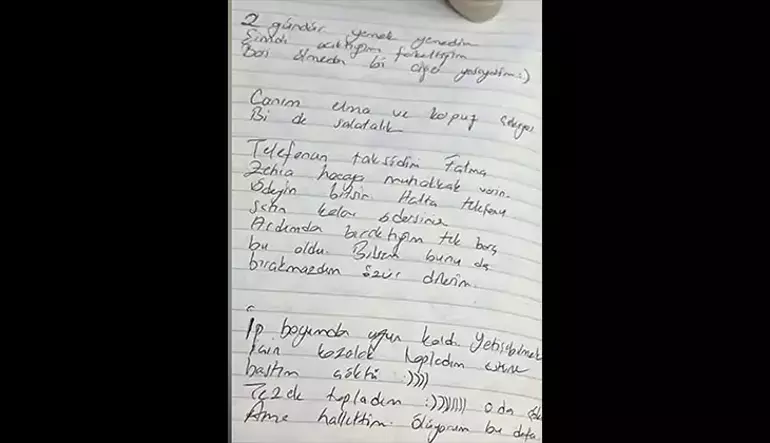 2 gündür yemek yemedim
Şimdi acıktığımı farkettim
Bari ölmeden bi çiğer yeseydim :)
Canım elma ve karpuz çekiyor
Bi de salatalık
Telefonun taksidini Fatma
Zehra hocaya muhakkak verin.
Ödeyin bitsin. Hatta telefonu
satın kalanı ödersiniz
Ardımda bıraktığım tek borç
bu oldu. Bilsem bunu da
bırakmazdım özür dilerim.
İp boyumda uzun kaldı. Yetişebilmek
için kozalak topladım üstüne
bastım çöktü :))))
Tezek topladım :))))))) o da
Ama hallettim. Ölüyorum bu defa